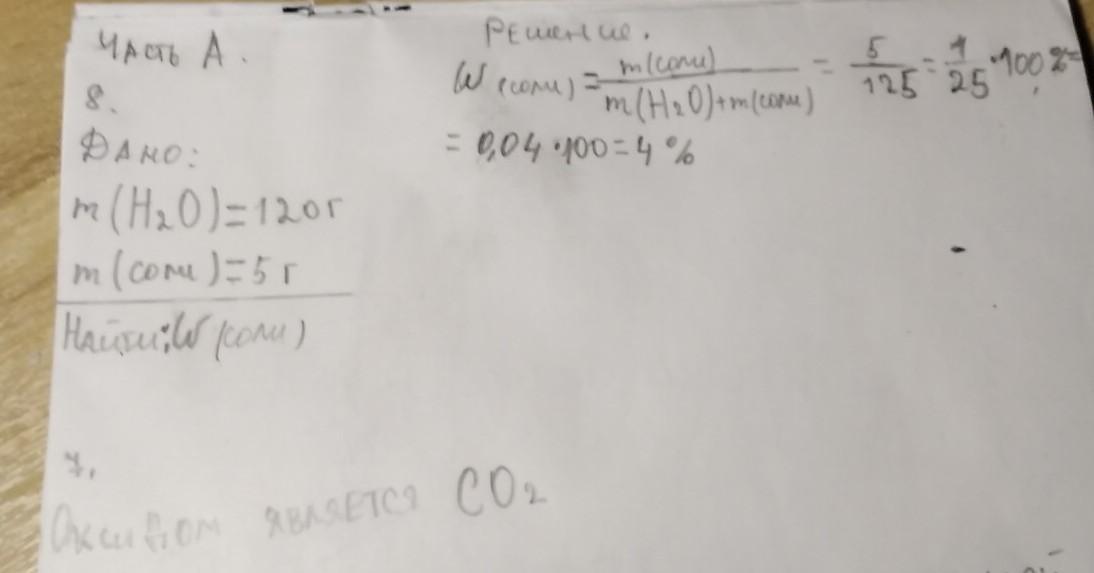 Часть А.
8.
Дано:
m(H₂O)=120г
m(соли)=5г
Найти:W(соли)
Решение.
W(соли)=m(соли)/m(H₂O)+m(соли) = 5/125=1/25·100%=
= 0,04·100=4%
7.
Оксидом является CO₂